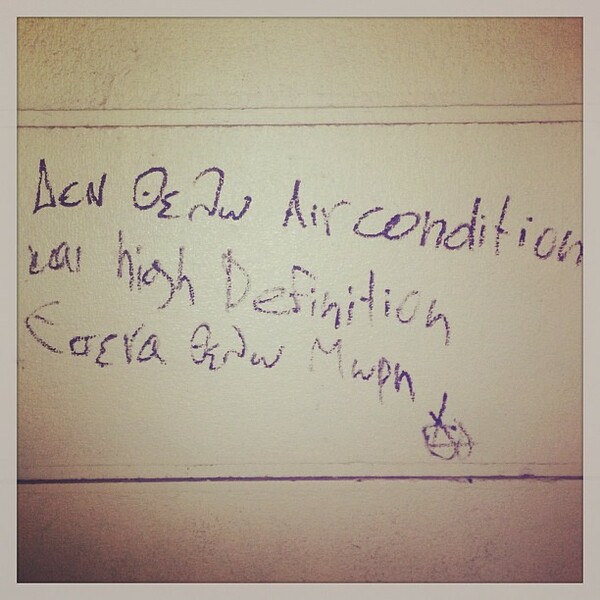 Δεν θελω Air condition
και high Definition
Εσενα θελω Μωρη